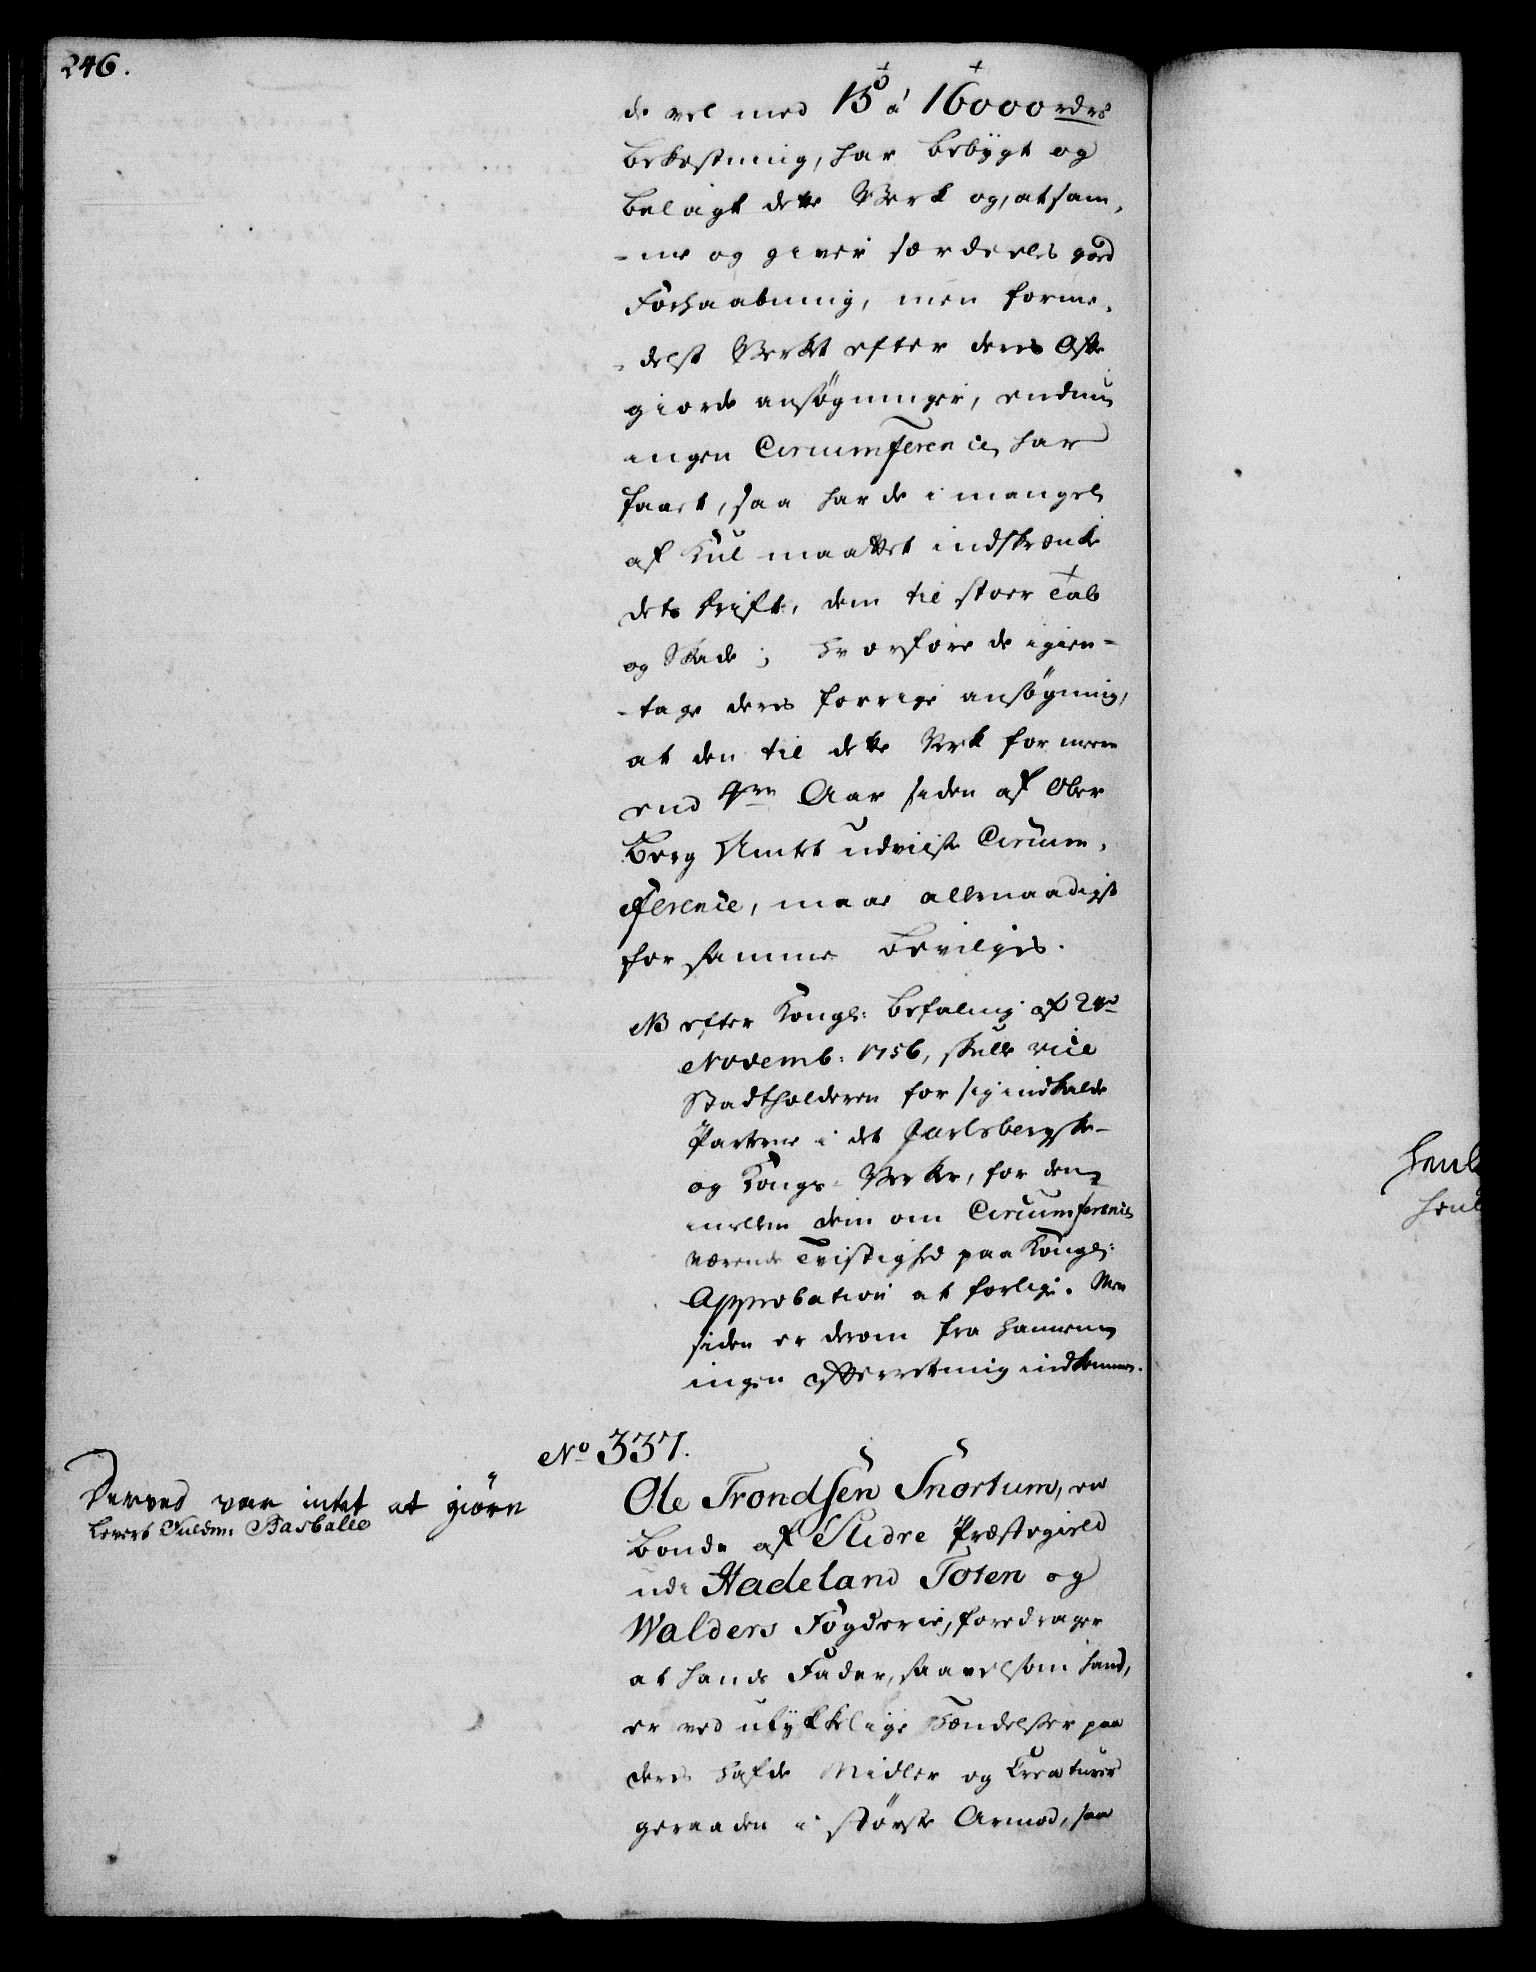 246.
de vel med 15 à 16000 rdrs
bekostning, har bebÿgt og
belagt dette Verk og, at sam„
„me og giver særdeeles god
Forhaabning, men forme„
„delst Verket efter deres Ofte
giorde ansøgninger, endnu
ingen Circumference har
faaet, saa har de i mangel
af Kul maattet indskrænke
dets drift, dem til stoer Tab
og Skade; hvorfore de igien-
-tage deres forrige ansøgning,
at den til dette Verk for meere
end 4re Aar siden af Ober
Berg Amtet udviiste Circum„
ference, maae allernaadigst
for samme bevilges.
NB efter Kongl: befaling af 2den
Novemb: 1756, skulle vice
Stadtholderen for sig indkalde
Parterne i det Jarlsbergske-
og Konge-Verke, for den
imellem dem om Circumference
værende Tvistighed paa Kongl:
Approbation at forlige. Men
siden er derom fra hannem
ingen efterretning indkommen.
No 337.
Derved var intet at giøre
Ole Trondsen Snortum, en
Bonde af Slidre Præstegield
udi Hadeland Toten og
Walders Fogderie, foredrager
at hands Fader, saavelsom hand,
er ved ulÿkkelige Hændelser paa
deres hafde Midler og Creaturer
geraaden i største Armod, saa